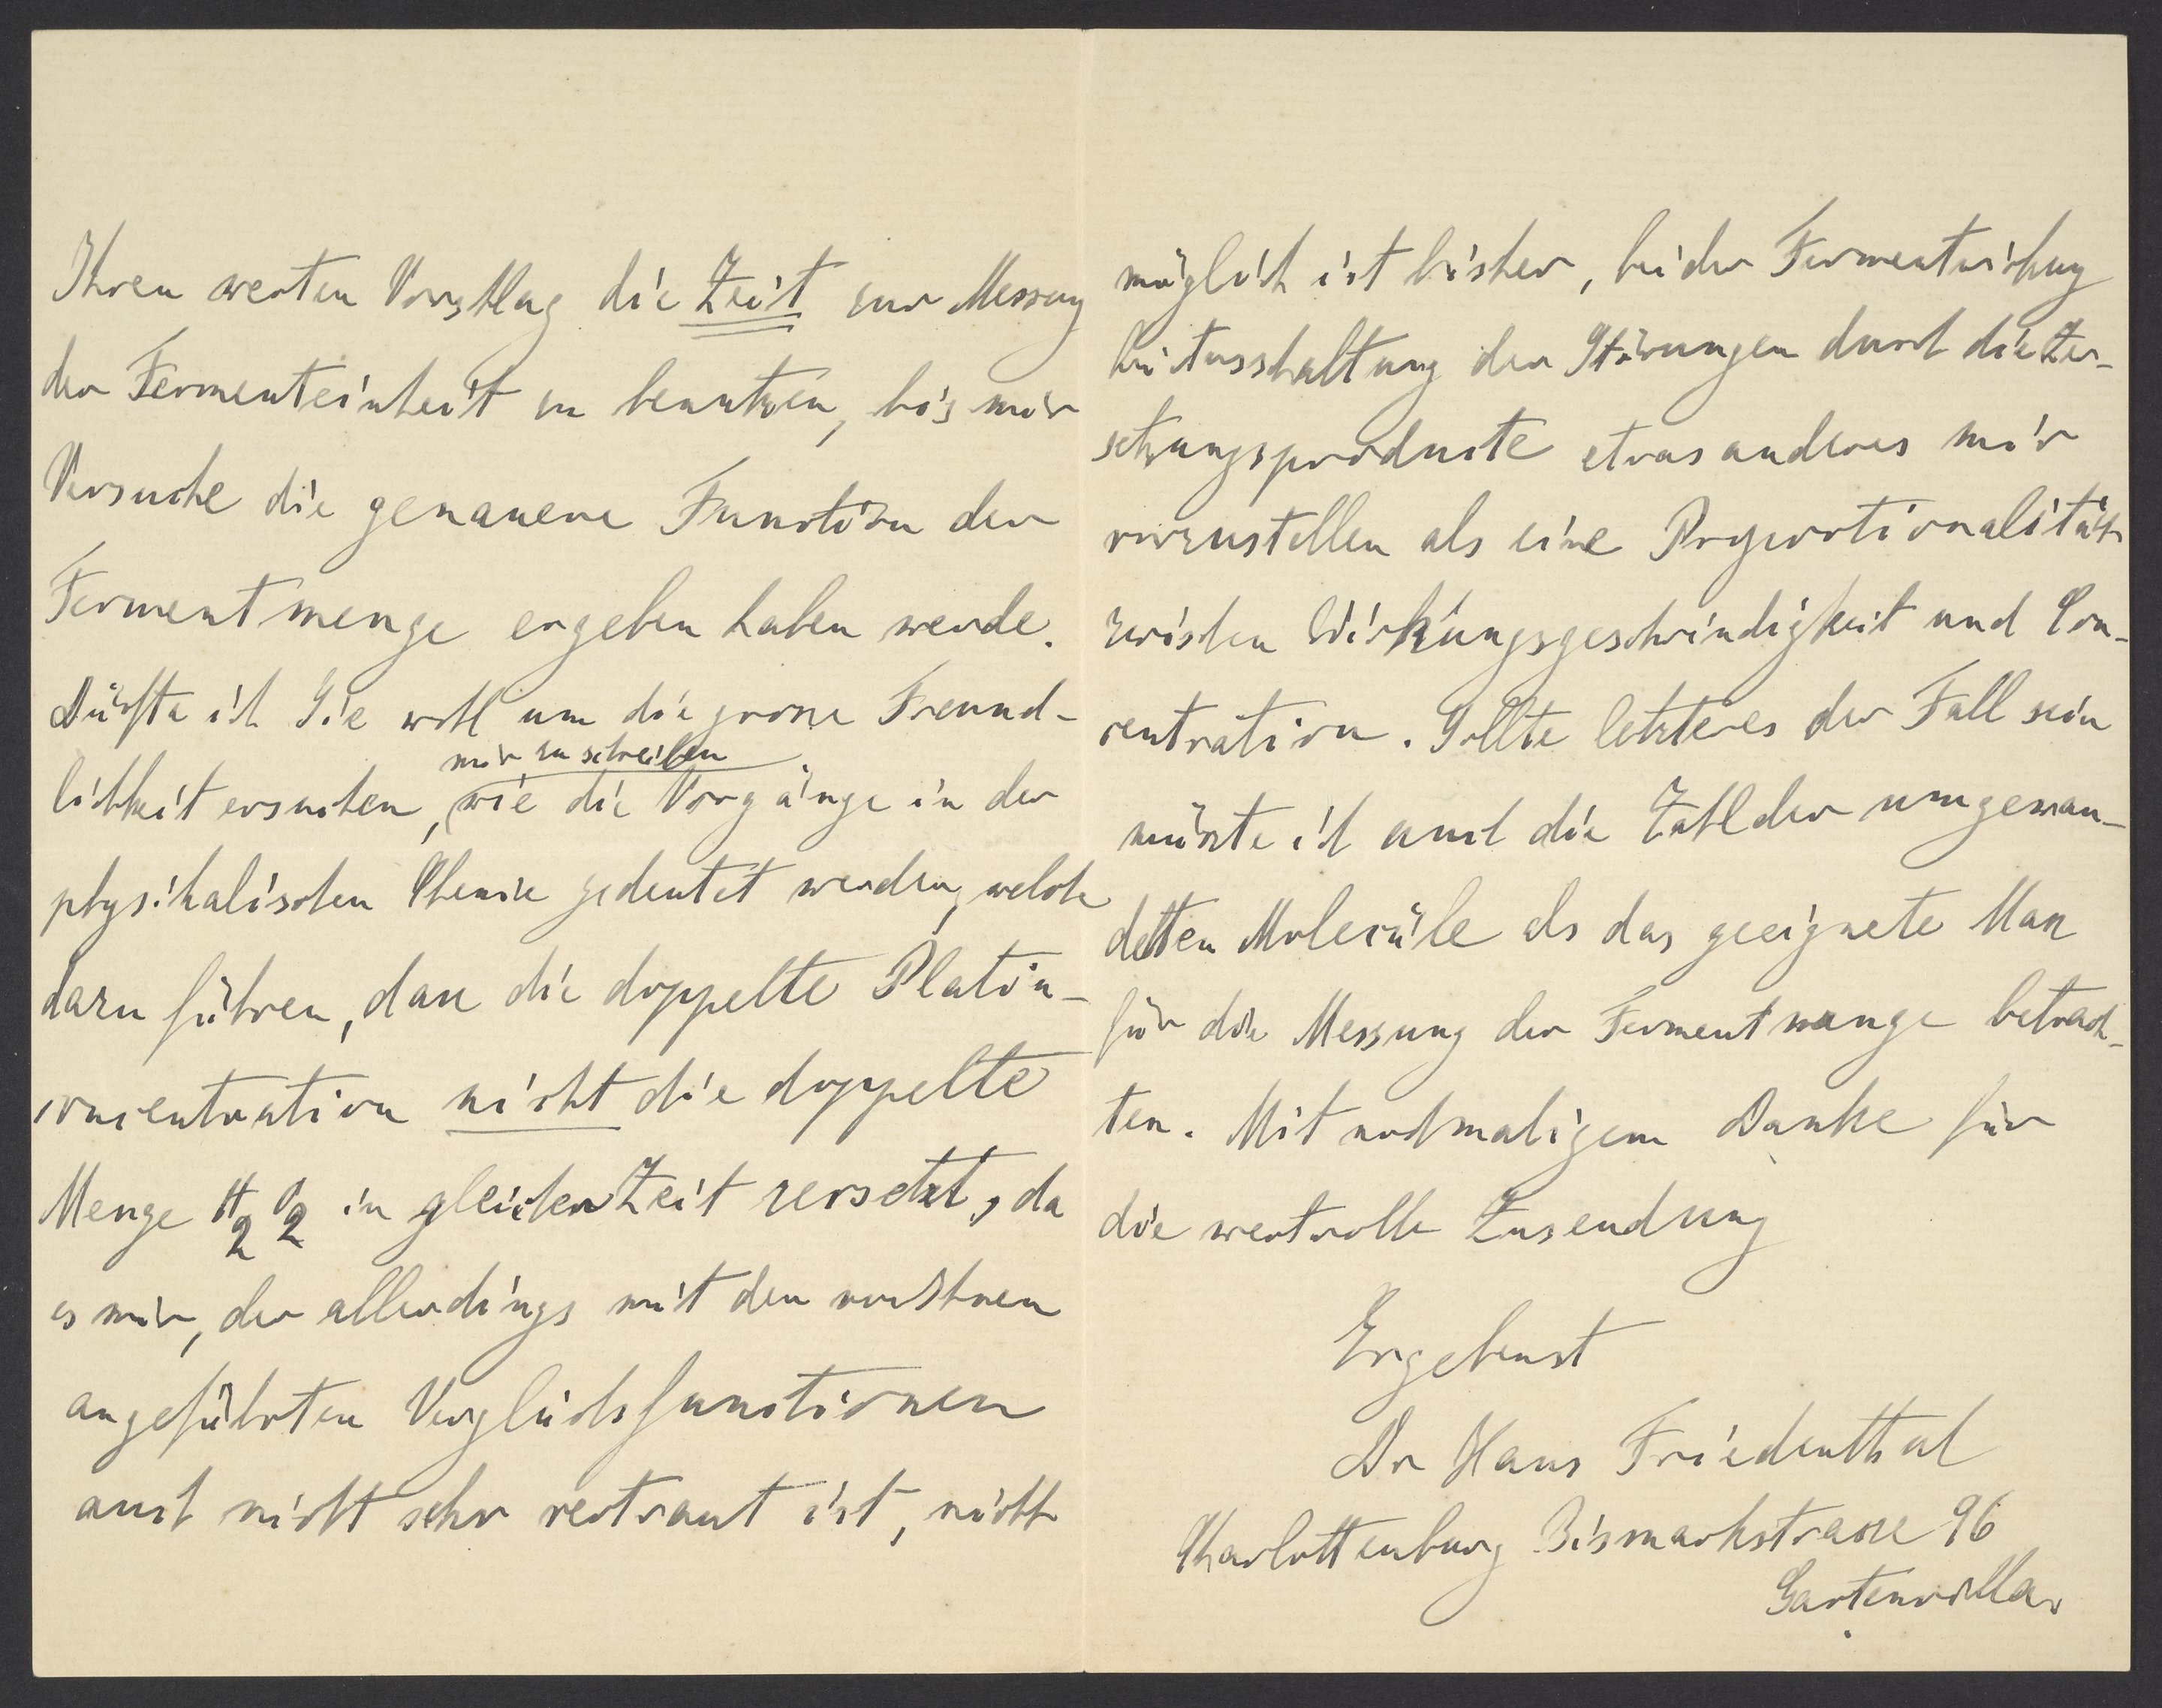 Ihren werten Vorschlag die Zeit zur Messung
der Fermenteinheit zu benutzen, bis mir
Versuche die genauere Function der
Fermentmenge ergeben haben werde.
Dürfte ich Sie wohl um die grosse Freund-
mir zu schreiben
lichkeit ersuchen, wie die Vorgänge in der
physikalischen Chemie gedeutet werden, welche
dazu führen, dass die doppelte Platin-
concentration nicht die doppelte
Menge H2O2 in gleicher Zeit zersetzt, da
es mir, der allerdings mit den
angeführten Vergleichsfunctionen
auch nicht sehr vertraut ist, nicht
möglich ist bisher, bei der Fermentwirkung
bei Ausschaltung der Störungen durch die Zer-
setzungsproducte etwas anderes mir
vorzustellen als eine Proportionalität
zwischen Wirkungsgeschwindigkeit und Con-
centration. Sollte letzteres der Fall sein
müsste ich auch die Zahl der umgewan-
delten Molecüle als das geeignete Mass
für die Messung der Fermentmenge betrach-
ten. Mit nochmaligem Danke für
die wertvolle Zusendung
Ergebenst
Dr Hans Friedenthal
Charlottenburg Bismarkstrasse 96
Gartenvilla